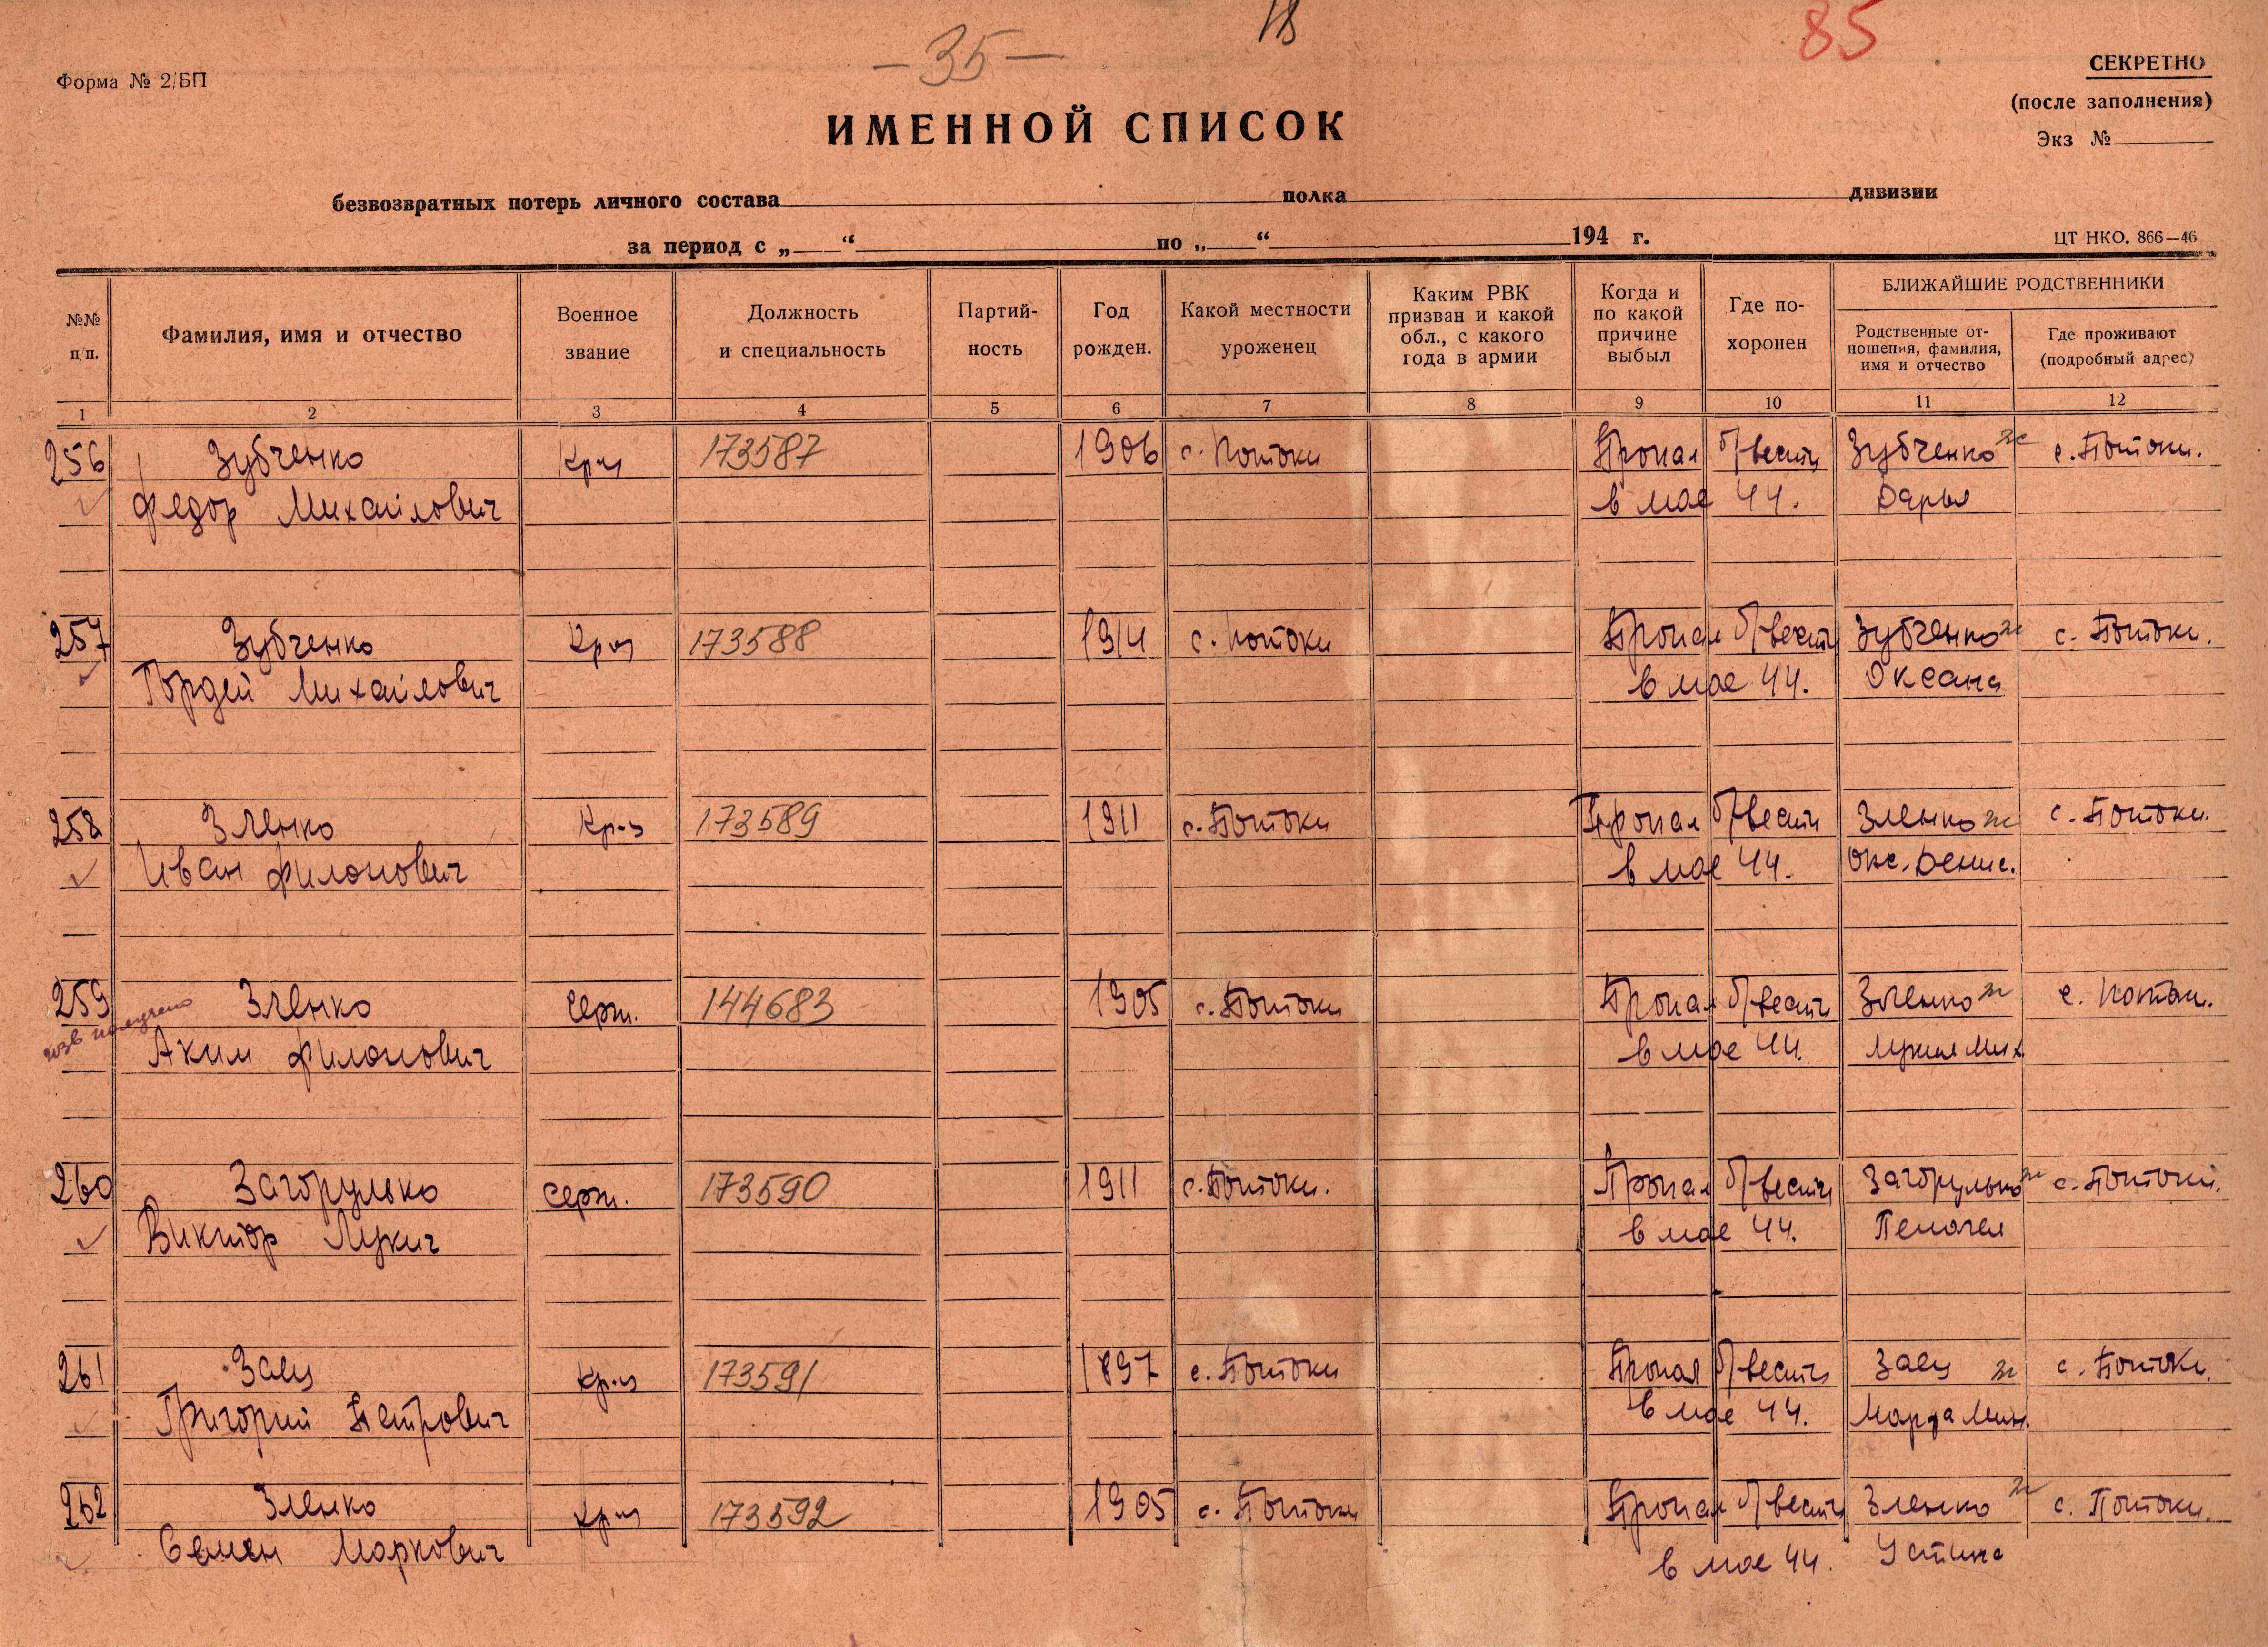 -35-
18
85
Форма № 2/БП
СЕКРЕТНО
(после заполнения)
Экз №
ИМЕННОЙ СПИСОК
безвозвратных потерь личного состава полка дивизии
за период с „ “ по „ “ 194 г.
ЦТ НКО. 866—46
№№ п/п.
Фамилия, имя и отчество
Военное звание
Должность и специальность
Партий-ность
Год рожден.
Какой местности уроженец
Каким РВК призван и какой обл., с какого года в армии
Когда и по какой причине выбыл
Где по-хоронен
БЛИЖАЙШИЕ РОДСТВЕННИКИ
Родственные от-ношения, фамилия, имя и отчество
Где проживают (подробный адрес)
1 2 3 4 5 6 7 8 9 10 11 12
256 Зубченко Кр-ц 173587 1906 с. Потоки Пропал б/вести Зубченко ж с. Потоки.
Федор Михайлович в мае 44. Дарья
257 Зубченко Кр-ц 173588 1914 с. Потоки Пропал б/вести Зубченко ж с. Потоки.
Гордей Михайлович в мае 44. Оксана
258 Зленко Кр-ц 173589 1911 с. Потоки Пропал б/вести Зленко ж с. Потоки.
Иван Филонович в мае 44. Окс. Денис.
259 Зленко Серж. 144683 1905 с. Потоки Пропал б/вести Зленко ж с. Потоки.
изв получено
Аким Филонович в мае 44. Лукия Мих
260 Загорулько Серж. 173590 1911 с. Потоки. Пропал б/вести Загорулько ж с. Потоки.
Виктор Лукич в мае 44. Пелагея
261 Заец Кр-ц 173591 1897 с. Потоки Пропал б/вести Заец ж с. Потоки.
Григорий Петрович в мае 44. Марфа Мин.
262 Зленко Кр-ц 173592 1905 с. Потоки Пропал б/вести Зленко ж с. Потоки.
Семен Маркович в мае 44. Устина